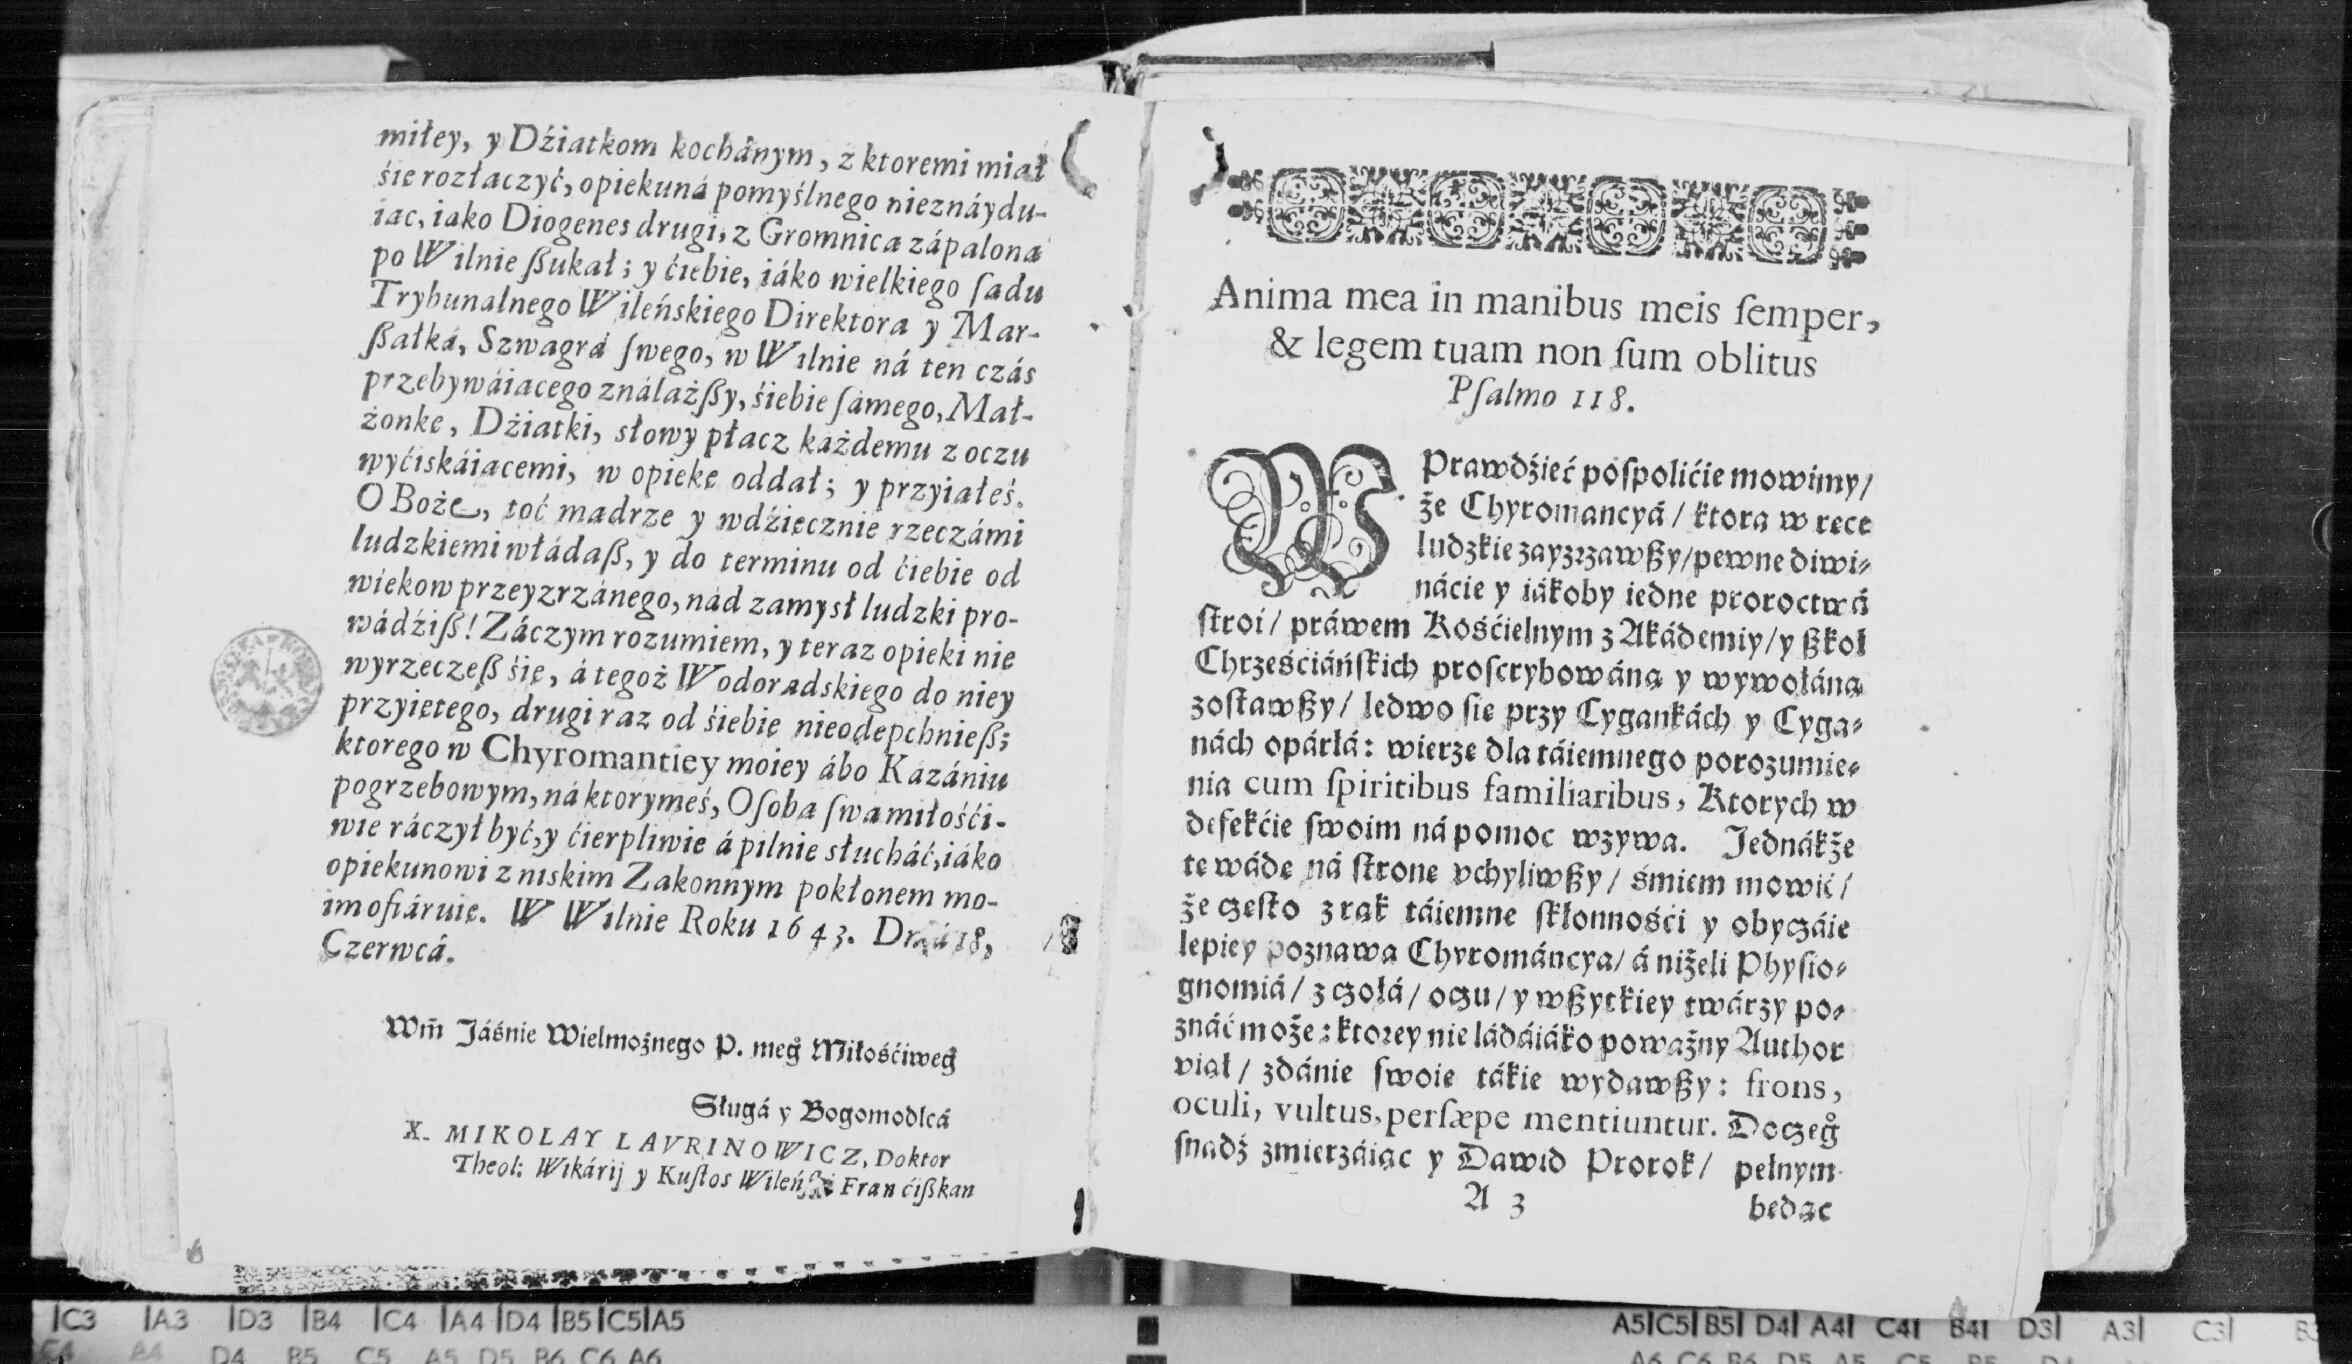 miłey, y Dźiatkom kochánym, z ktoremi miał
śie rozłaczyć, opiekuná pomyślnego nieznáydu-
iac, iako Diogenes drugi, z Gromnica zápalona
po Wilnie ßukał; y ćiebie, iáko wielkiego ſadu
Trybunalnego Wileńskiego Direktora y Mar-
ßałká, Szwagrá ſwego, w Wilnie ná ten czás
przebywáiacegoználażßy, śiebie ſámego, Mał-
żonke, Dźiatki, słowy płacz każdemu z oczu
wyćiskáiacemi, w opieke oddał; y przyiałeś.
O Boże, toć madrze y wdźięcznie rzeczámi
ludzkiemi władaß, y do terminu od ćiebie od
wiekow przeyzrzánego, nád zamysł ludzki pro-
wádźiß! Záczym rozumiem, y teraz opieki nie
wyrzeczeß śię, á tegoż Wodoradskiego do niey
przyiętego, drugi raz od śiebie nieodepchnieß;
ktorego w Chyromantiey moiey ábo Kazániu
pogrzebowym, ná ktorymeś, Oſoba ſwa miłośći-
wie ráczył być, y ćierpliwie á pilnie słucháć, iáko
opiekunowi z niskim Zakonnym pokłonem mo-
im ofiáruię. W Wilnie Roku 1643. Dniá 18,
Czerwcá.
Wm̃ Jáśnie Wielmożnego P. meg̊ Miłośćiweg̊
Sługá y Bogomodlcá
X. MIKOLAY LAVRINOWICZ, Doktor
Theol: Wikárij y Kuſtos Wileń Franćißkan
Anima mea in manibus meis ſemper,
& legem tuam non ſum oblitus
Pſalmo 118.
WPrawdźieć poſpolićie mowimy/
że Chyromancyá/ ktora w rece
ludzkie zayzrzawßy/ pewne diwi-
nácie y iákoby iedne proroctwá
ſtroi/ práwem Kośćielnym z Akádemiy/ y ßkoł
Chrześćiáńſkich proſcrybowána y wywołána
zoſtawßy/ ledwo ſie przy Cygankách y Cyga-
nách opárłá: wierze dla táiemnego porozumie-
nia cum ſpiritibus familiaribus, Ktorych w
defekćie ſwoim ná pomoc wzywa. Jednákże
te wáde ná ſtrone vchyliwßy/ śmiem mowić/
że czeſto z rąk táiemne ſkłonnośći y obyczáie
lepiey poznawa Chyrománcya/ á niżeli Phyſio-
gnomiá/ z czołá/ oczu/ y wßytkiey twárzy po-
znáć może: ktorey nie ládáiáko poważny Author
viął/ zdánie ſwoie tákie wydawßy: frons,
oculi, vultus, perſæpe mentiuntur. Doczeg̊
ſnadź zmierzáiąc y Dawid Prorok/ pełnym
A 3 bedąc
C3 A3 D3 B4 C4 A4 D4 B5 C5 A5
A5 C5 B5 D4 A4 C4 B4 D3 A3 C3
C4 A4 D4 B5 C5 A5 D5 B6 C6 A6